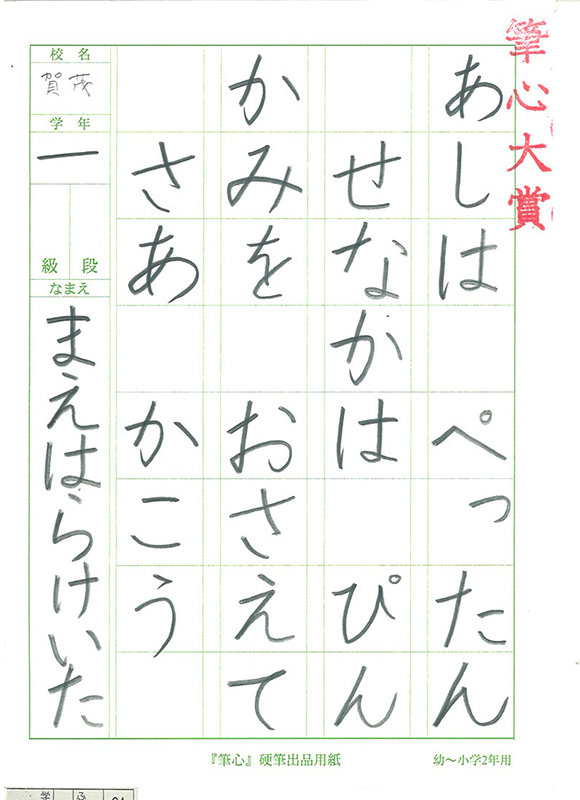 筆心大賞
あしは ぺったん
せなかは ぴん
かみを おさえて
さあ かこう
校名
賀茂
学年
一
級 段
なまえ
まえはらけいた
『筆心』硬筆出品用紙
幼〜小学2年用